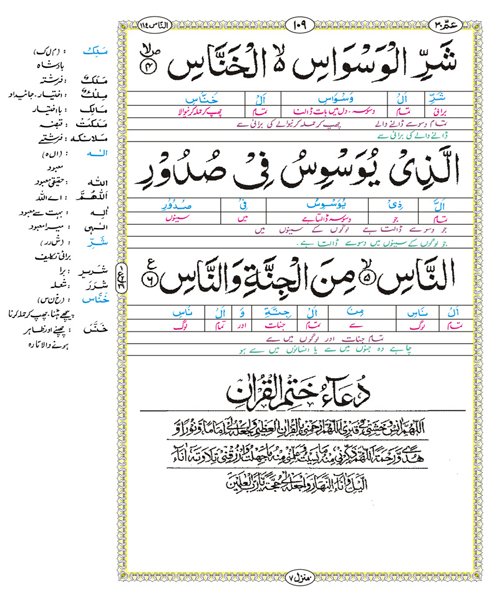 عمّ ۳۰
۱۰۹
الناس ۱۱۴
شَرِّ الْوَسْوَاسِ ۙ الْخَنَّاسِ ۴
شَرِّ | اَلْ | وَسْوَاسِ | اَلْ | خَنَّاسِ
برائی | تمام | وسوسہ، دل میں بات ڈالنا | تمام | چھپ کر حملہ کرنیوالا
تمام وسوسے ڈالنے والے چھپ کر حملہ کرنیوالے کی برائی سے
ڈالنے والے کی برائی سے
الَّذِیْ یُوَسْوِسُ فِیْ صُدُوْرِ
اَلْ | ذِیْ | یُوَسْوِسُ | فِیْ | صُدُوْرِ
تمام | جو | وسوسہ ڈالتا ہے | میں | سینوں
جو وسوسے ڈالتا ہے لوگوں کے سینوں میں
جو لوگوں کے سینوں میں وسوسے ڈالتا ہے۔
النَّاسِ ۵ مِنَ الْجِنَّةِ وَالنَّاسِ ۶
اَلْ | نَاسِ | مِنَ | اَلْ | جِنَّةِ | وَ | اَلْ | نَاسِ
تمام | لوگ | سے | تمام | جنات | اور | تمام | لوگ
تمام جنات اور لوگوں میں سے
چاہے وہ جنوں میں سے یا انسانوں میں سے ہو
دُعَاءُ خَتْمِ الْقُرْاٰنِ
اَللّٰهُمَّ اٰنِسْ وَحْشَتِيْ فِيْ قَبْرِيْ اَللّٰهُمَّ ارْحَمْنِيْ بِالْقُرْاٰنِ الْعَظِيْمِ وَاجْعَلْهُ لِيْ اِمَامًا وَّنُوْرًا وَّ
هُدًى وَّرَحْمَةً اَللّٰهُمَّ ذَكِّرْنِيْ مِنْهُ مَا نَسِيْتُ وَعَلِّمْنِيْ مِنْهُ مَا جَهِلْتُ وَارْزُقْنِيْ تِلَاوَتَهٗ اٰنَاءَ
الَّيْلِ وَاٰنَاءَ النَّهَارِ وَاجْعَلْهُ لِيْ حُجَّةً يَّا رَبَّ الْعٰلَمِيْنَ
منزل ۷
مَلِكِ : (م ل ک)
بادشاہ
مَلَكٌ : فرشتہ
مِلْكٌ : اختیار، جائیداد
مَالِكٌ : با اختیار
: قبضہ
مَلَائِكَه : فرشتے
اِلٰه : (ا ل ہ)
معبود
اَللّٰه : حقیقی معبود
اَللّٰهُمَّ : اے اللہ
: بہت سے معبود
اِلٰهِیْ : میرا معبود
شَرِّ : (ش ر ر)
برائی، تکلیف
شَرِیر : برا
شَرَر : شعلہ
خَنَّاس : (خ ن س)
پیچھے ہٹنا، چھپ کر حملہ کرنا
: چھپنے اور ظاہر
ہونے والا تارہ